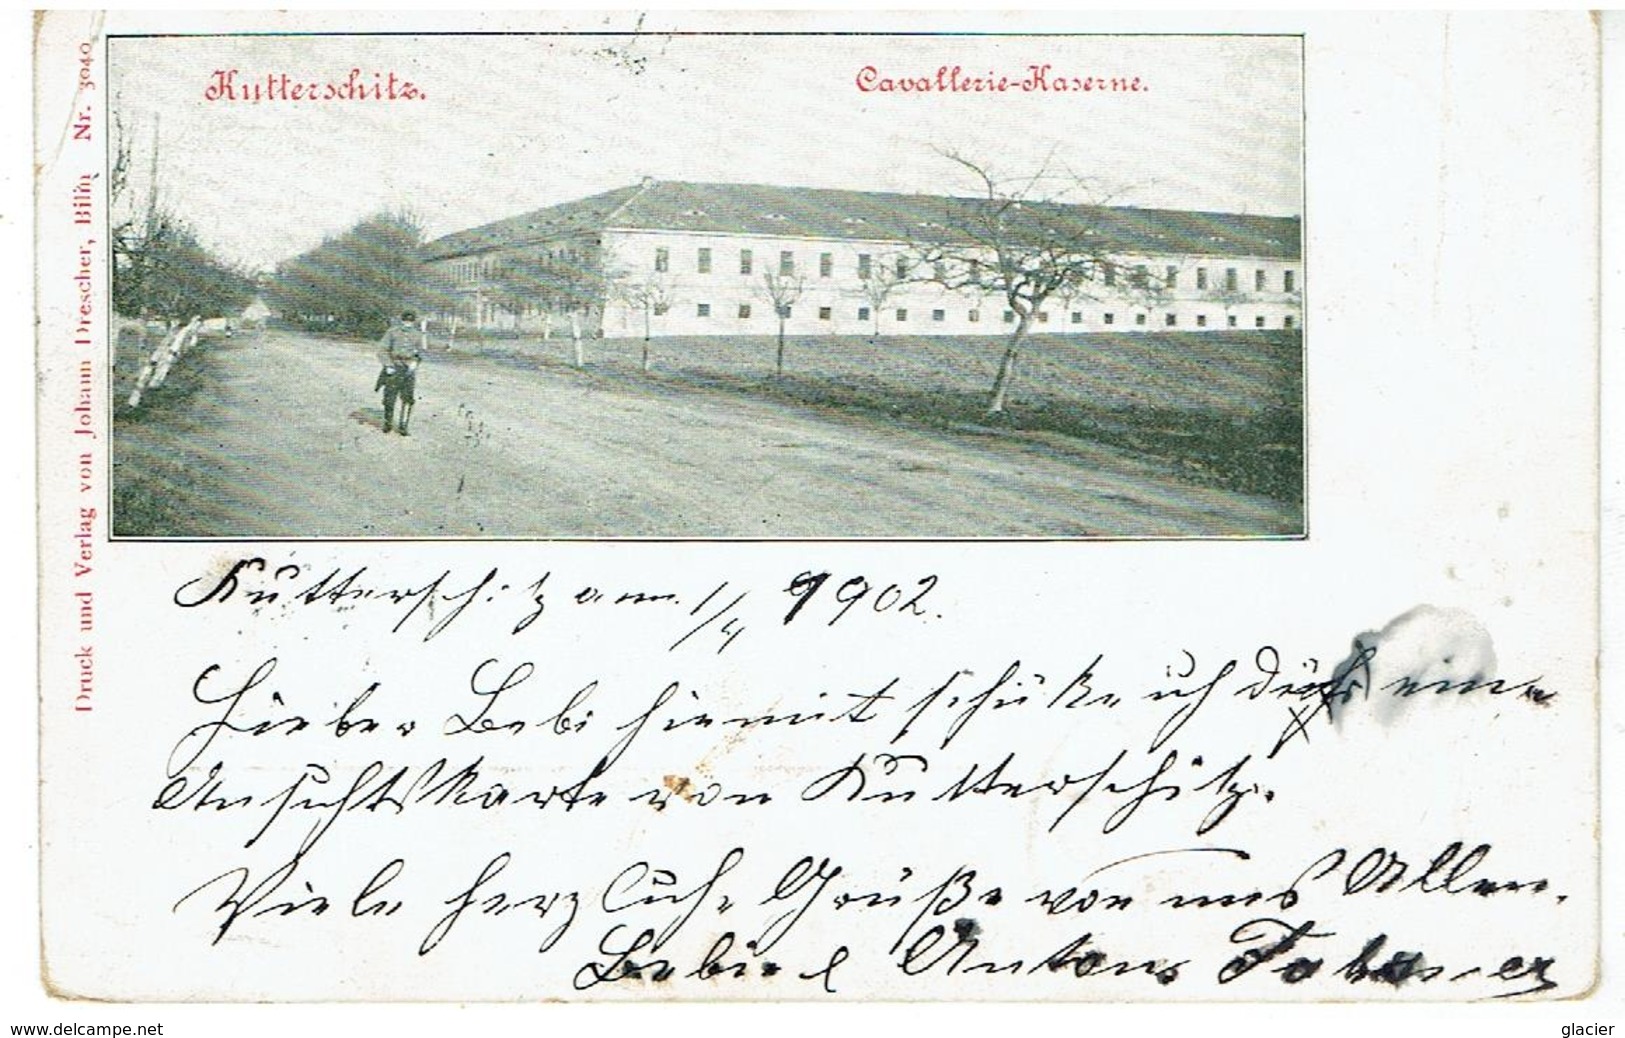 Kutterschitz.
Cavallerie-Kaserne.
Druck und Verlag von Johann Drescher, Bilin Nr. 3040
Kutterschitz am 1/4 1902.
Lieber Bebi hiermit schüke ich eine
Ansichtskarte von Kutterschitz.
Viele herzliche Grüße von uns Allen.
Anton
www.delcampe.net
glacier